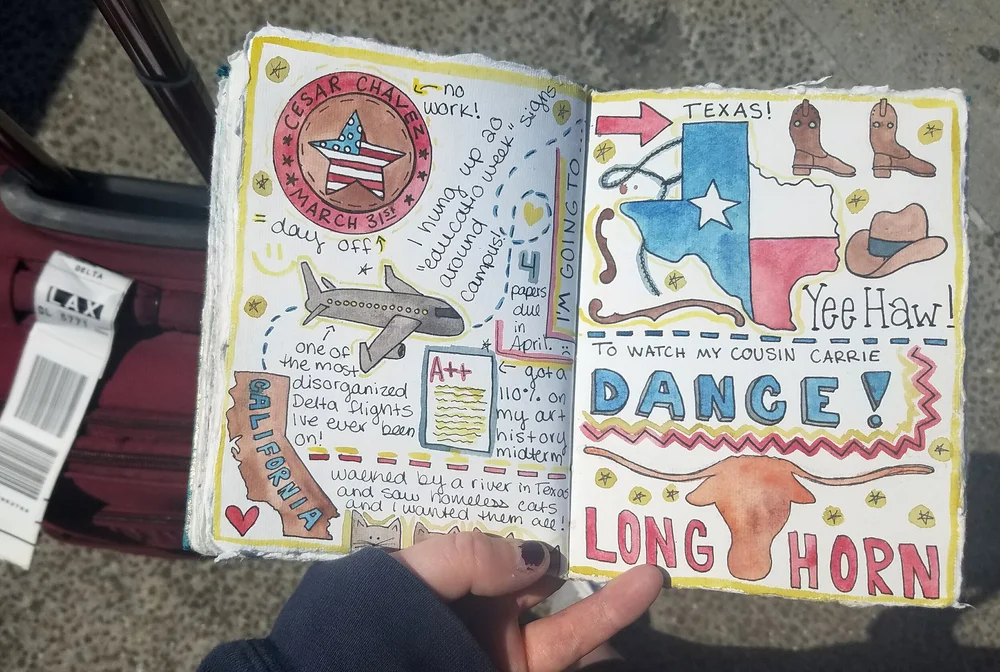 CESAR CHAVEZ
MARCH 31ST
no
work!
= day off
I hung up 20
"educato week" signs
around
campus!
4
papers
due
in
April.
IM GOING TO
one of
the most
disorganized
Delta flights
I've ever been
on!
A++
got a
110% on
my art
history
midterm
CALIFORNIA
walked by a river in Texas
and saw homeless cats
and i wanted them all!
TEXAS!
Yee Haw!
TO WATCH MY COUSIN CARRIE
DANCE!
LONG HORN
DELTA
LAX